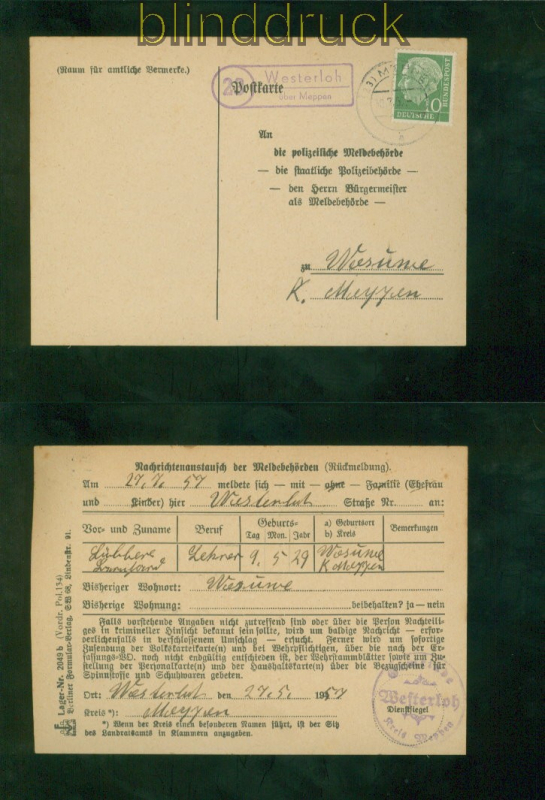 blinddruck
(Raum für amtliche Vermerke.)
Westerloh
über Meppen
Postkarte
10
DEUTSCHE
BUNDESPOST
An
die polizeiliche Meldebehörde
— die staatliche Polizeibehörde —
— den Herrn Bürgermeister
als Meldebehörde —
zu Wesuwe
K. Meppen
Nachrichtenaustausch der Meldebehörden (Rückmeldung).
Am 27.5. 57 meldete sich — mit — ohne — Familie (Ehefrau
und Kinder) hier Westerloh Straße Nr. an:
Vor- und Zuname
Beruf
Geburts-
Tag Mon. Jahr
a) Geburtsort
b) Kreis
Bemerkungen
Lehrer
9. 5 29
Wesuwe
K. Meppen
Bisheriger Wohnort: Wesuwe
Bisherige Wohnung: beibehalten? ja — nein
Falls vorstehende Angaben nicht zutreffend sind oder über die Person Nachteili-
ges in krimineller Hinsicht bekannt sein sollte, wird um baldige Nachricht — erfor-
derlichenfalls in verschlossenem Umschlag — ersucht. Ferner wird um sofortige
Zusendung der Volkskarteikarte(n) und bei Wehrpflichtigen, über die nach der Er-
fassungs-VO. noch nicht endgültig entschieden ist, der Wehrstammblätter sowie um Zu-
stellung der Personalkarte(n) und der Haushaltskarte(n) über die Bezugscheine für
Spinnstoffe und Schuhwaren gebeten.
Ort: Westerloh den 27.5. 1957
Kreis *): Meppen
*) Wenn der Kreis einen besonderen Namen führt, ist der Sitz
des Landratsamts in Klammern anzugeben.
Westerloh
Kreis Meppen
Dienstsiegel
Lager-Nr. 2049 b (Vordr. Pol. 134)
Berliner Formular-Verlag, SW 68, Lindenstr. 91.